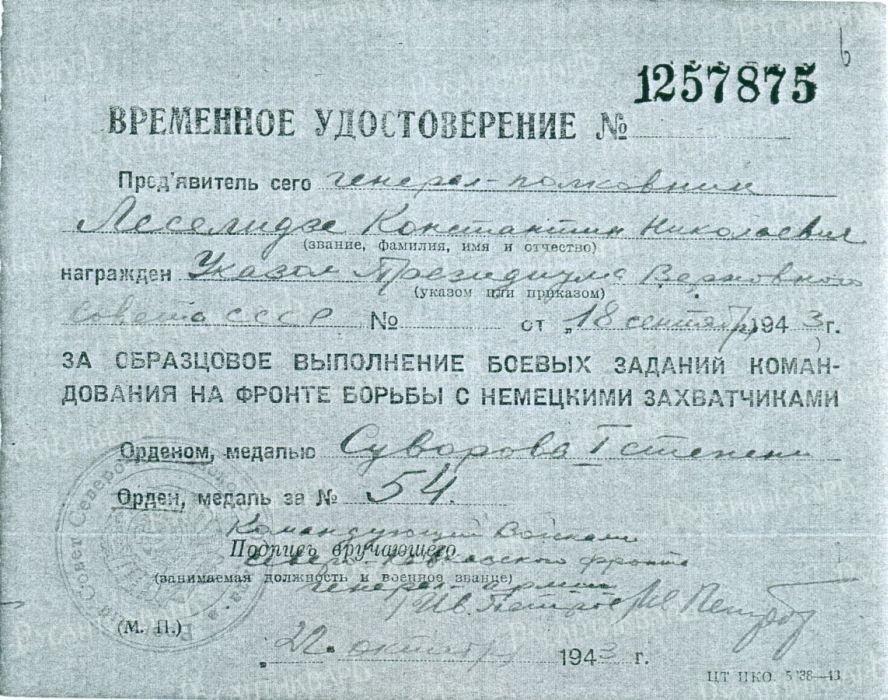 1257875
ВРЕМЕННОЕ УДОСТОВЕРЕНИЕ №
Пред'явитель сего генерал-полковник
Леселидзе Константин Николаевич
(звание, фамилия, имя и отчество)
награжден Указом Президиума Верховного
(указом или приказом)
Совета СССР № от „18 сентября 1943 г.
ЗА ОБРАЗЦОВОЕ ВЫПОЛНЕНИЕ БОЕВЫХ ЗАДАНИЙ КОМАН-
ДОВАНИЯ НА ФРОНТЕ БОРЬБЫ С НЕМЕЦКИМИ ЗАХВАТЧИКАМИ
Орденом, медалью Суворова I степени
Орден, медаль за № 54.
Командующий Войсками
Подпись вручающего
Северо-Кавказского фронта
(занимаемая должность и военное звание)
генерал-армии
Ив. Петров Ив Петров
(М. П.)
„22 октября 1943 г.
ЦТ НКО. 5138—43